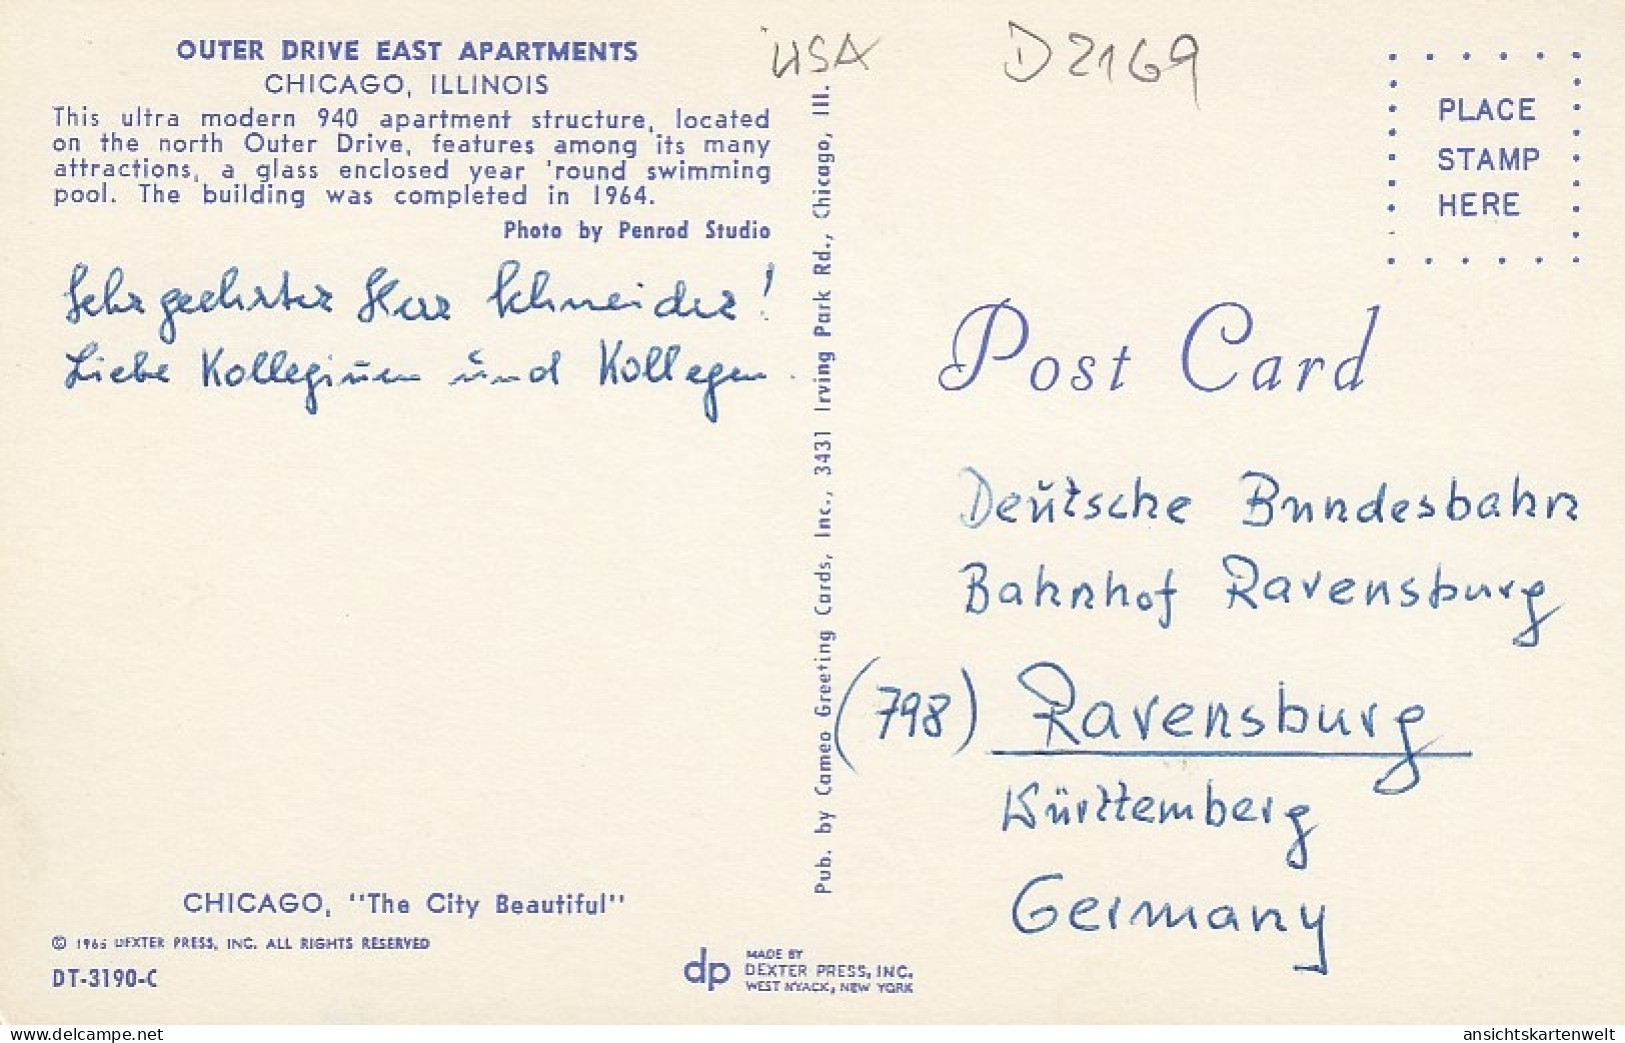 OUTER DRIVE EAST APARTMENTS
CHICAGO, ILLINOIS
This ultra modern 940 apartment structure, located
on the north Outer Drive, features among its many
attractions, a glass enclosed year 'round swimming
pool. The building was completed in 1964.
Photo by Penrod Studio
Sehr geehrter Herr Schneider!
Liebe Kolleginnen und Kollegen
CHICAGO, "The City Beautiful"
© 1965 DEXTER PRESS, INC. ALL RIGHTS RESERVED
DT-3190-C
Pub. by Cameo Greeting Cards, Inc., 3431 Irving Park Rd., Chicago, Ill.
dp
MADE BY
DEXTER PRESS, INC.
WEST NYACK, NEW YORK
USA D2169
PLACE
STAMP
HERE
Post Card
Deutsche Bundesbahn
Bahnhof Ravensburg
(798) Ravensburg
Württemberg
Germany
www.delcampe.net
ansichtskartenwelt